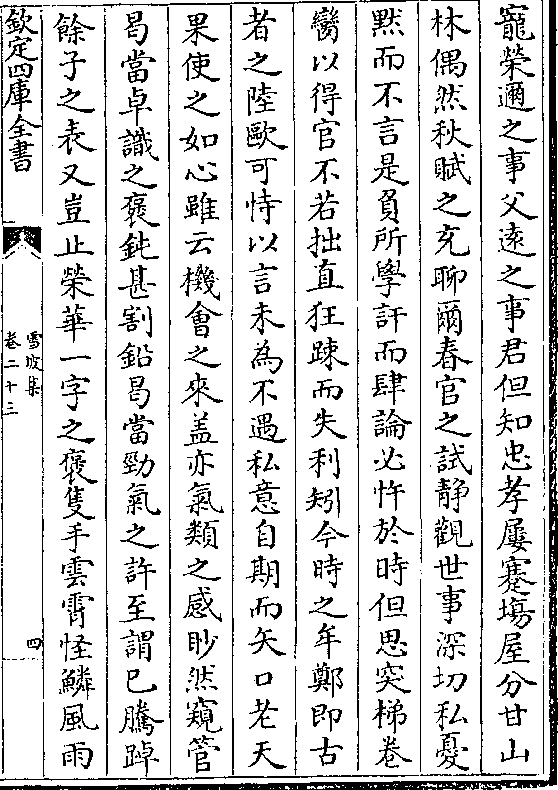 寵榮邇之事父逺之事君但知忠孝屢蹇場屋分甘山
林偶然秋賦之充聊爾春官之試静觀世事深切私憂
黙而不言是負所學訐而肆論必忤於時但思突梯卷
臠以得官不若拙直狂踈而失利矧今時之年鄭即古
者之陸歐可恃以言未為不遇私意自期而矢口老天
果使之如心雖云機會之來盖亦氣類之感眇然窺管
曷當卓識之褒鈍甚割鉛曷當勁氣之許至謂已騰踔
餘子之表又豈止榮華一字之褒隻手雲霄怪鱗風雨
欽定四庫全書
雪坡集
卷二十三
四